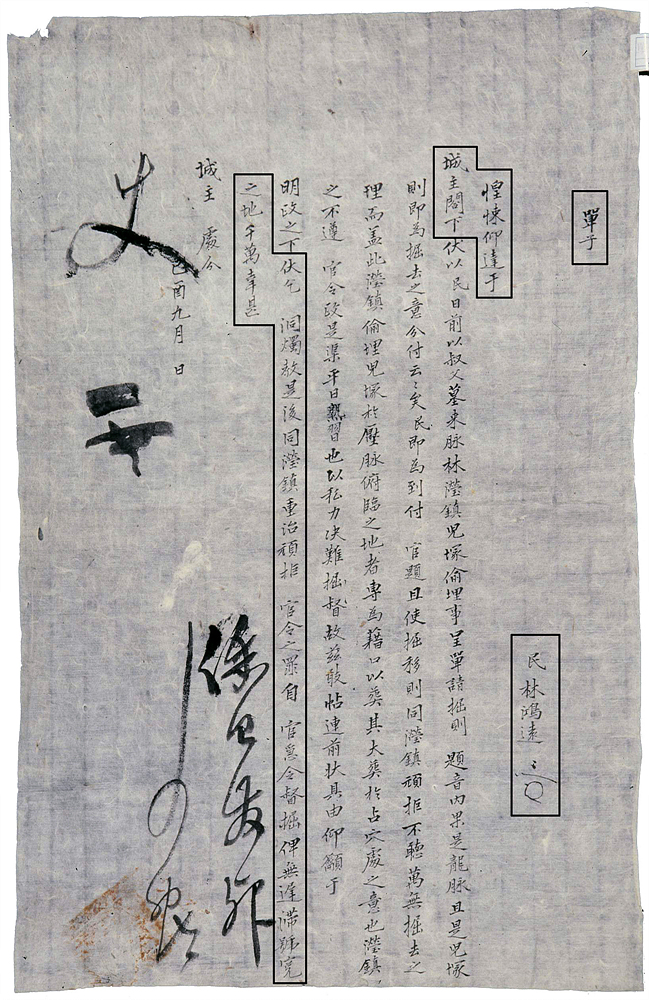 單子
民 林鴻遠
惶悚仰達于
城主閤下伏以民日前以叔父墓來脉林瀅鎮兒塚偷埋事呈單請掘則 題音內果是龍脉且是兒塚
則即爲掘去之意分付云云矣民即爲到付 官題且使掘移則同瀅鎮頑拒不聽萬無掘去之
理而盖此瀅鎮偷埋兒塚於壓脉俯臨之地者專爲藉口以葬其大葬於占穴處之意也瀅鎮
之不遵 官令政是渠平日熟習也以私力決難掘督故玆敢帖連前狀具由仰籲于
明政之下伏乞 洞燭敎是後同瀅鎮重治頑拒 官令之罪自 官急令督掘俾無遲滯歸寃
之地千萬幸甚
城主 處分
己酉九月 日